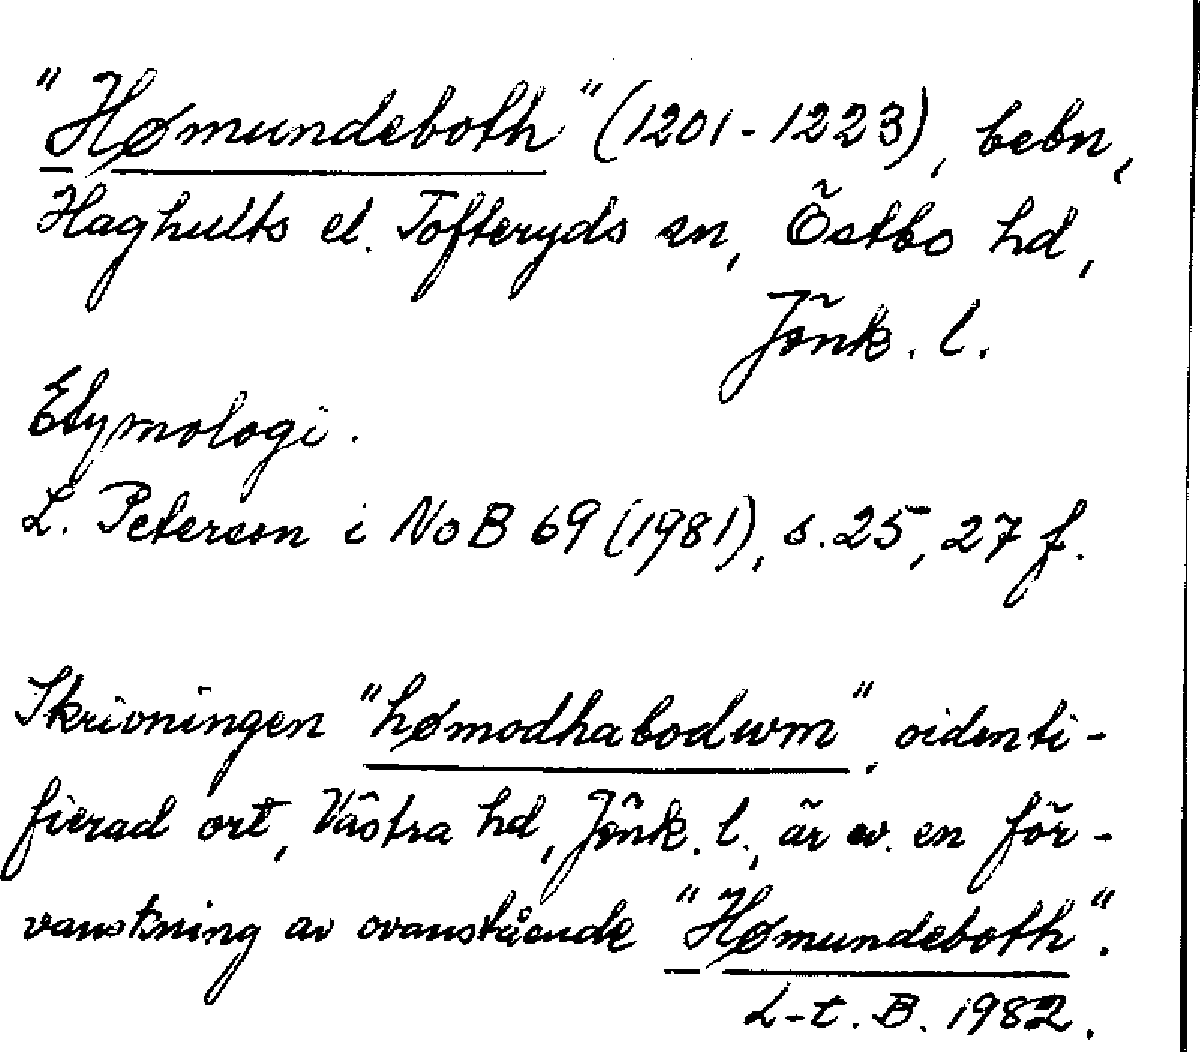 "Hømundeboth" (1201-1223), bebn,
Haghults el. Tofteryds sn, Östbo hd,
Jönk. l.
Etymologi.
L. Peterson i NoB 69 (1981), s. 25, 27 f.
Skrivningen "hømodhabodwm", oidenti-
fierad ort, Västra hd, Jönk. l., är ev. en för-
vanskning av ovanstående "Hømundeboth".
L-t. B. 1982.